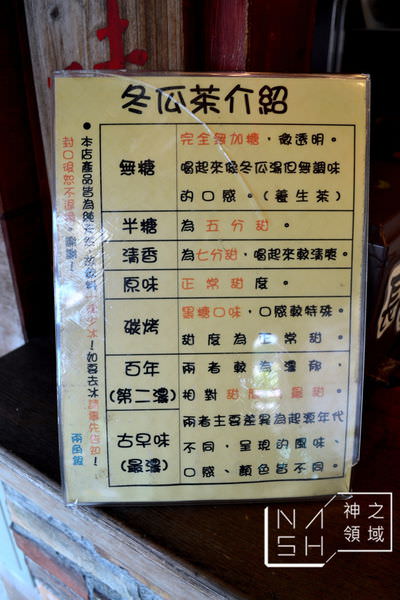 冬瓜茶介紹
無糖
完全無加糖，微透明。
喝起來像冬瓜湯但無調味
的口感。(養生茶)
半糖
為五分甜。
清香
為七分甜，喝起來較清爽。
原味
正常甜度。
碳烤
黑糖口味，口感較特殊。
甜度為正常甜。
百年
(第二濃)
古早味
(最濃)
兩者較為濃郁，
相對甜度最甜。
兩者主要差異為起源年代
不同，呈現的風味、
口感、顏色皆不同。
●本店產品皆為
少冰!如要去冰請事先告知!
封口後恕不退換，謝謝!
NASH
神之
領域